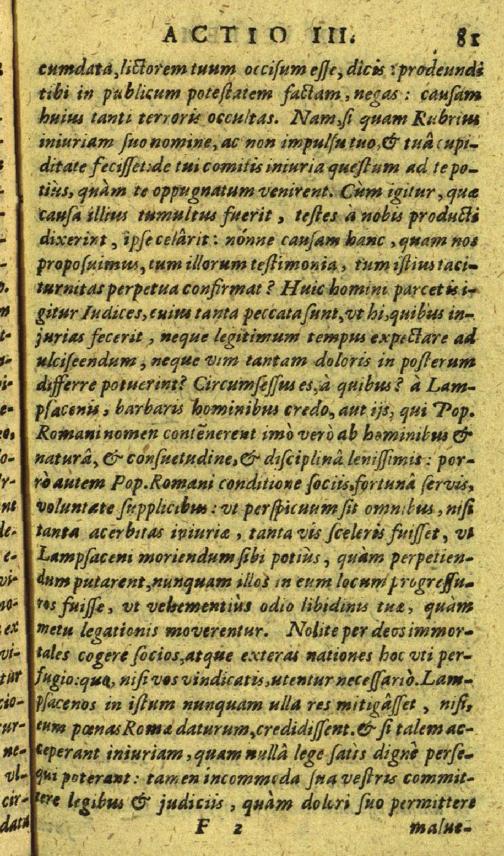 ACTIO III. 81
cumdata,lictorem tuum occisum esse, dicis : prodeundi
tibi in publicum potestatem factam, negas : causam
huius tanti terroris occultas. Nam, si quam Rubrius
iniuriam suo nomine, ac non impulsu tuo, & tuâ cupi-
ditate fecisset: de tui comitis iniuria questum ad te po-
tiùs, quàm te oppugnatum venirent. Cùm igitur, quæ
causa illius tumultus fuerit, testes à nobis producti
dixerint, ipse celârit : nónne causam hanc, quam nos
proposuimus, tum illorum testimonia, tum istius taci-
turnitas perpetua confirmat? Huic homini parcetis i-
gitur Iudices, cuius tanta peccata sunt, vt hi, quibus in-
jurias fecerit, neque legitimum tempus expectare ad
ulciseendum, neque vim tantam doloris in posterum
differre potuerint? Circumsessus es, à quibus? à Lam-
psacenis, barbaris hominibus credo, aut ijs, qui Pop.
Romani nomen contẽnerent imò verò ab hominibus &
naturâ, & consuetudine, & disciplinâ lenissimis : por-
rò autem Pop. Romani conditione sociis, fortunâ servis,
voluntate supplicibus : vt perspicuum sit omnibus, nisi
tanta acerbitas iniuriæ, tanta vis sceleris fuisset, vt
Lampsaceni moriendum sibi potiùs, quàm perpetien-
dum putarent, nunquam illos in eum locum progressu-
ros fuisse, vt vehementius odio libidinis tuæ, quàm
metu legationis moverentur. Nolite per deos immor-
tales cogere socios, atque exteras nationes hoc vti per-
fugio: quo, nisi vos vindicatis, utentur necessariò. Lam-
psacenos in istum nunquam ulla res mitigâsset, nisi,
eum pœnas Romæ daturum, credidissent. & si talem ac-
ceperant iniuriam, quam nullâ lege satis dignè perse-
qui poterant : tamen incommoda sua vestris commit-
tere legibus & judiciis, quàm dolori suo permittere
F 2 malue-